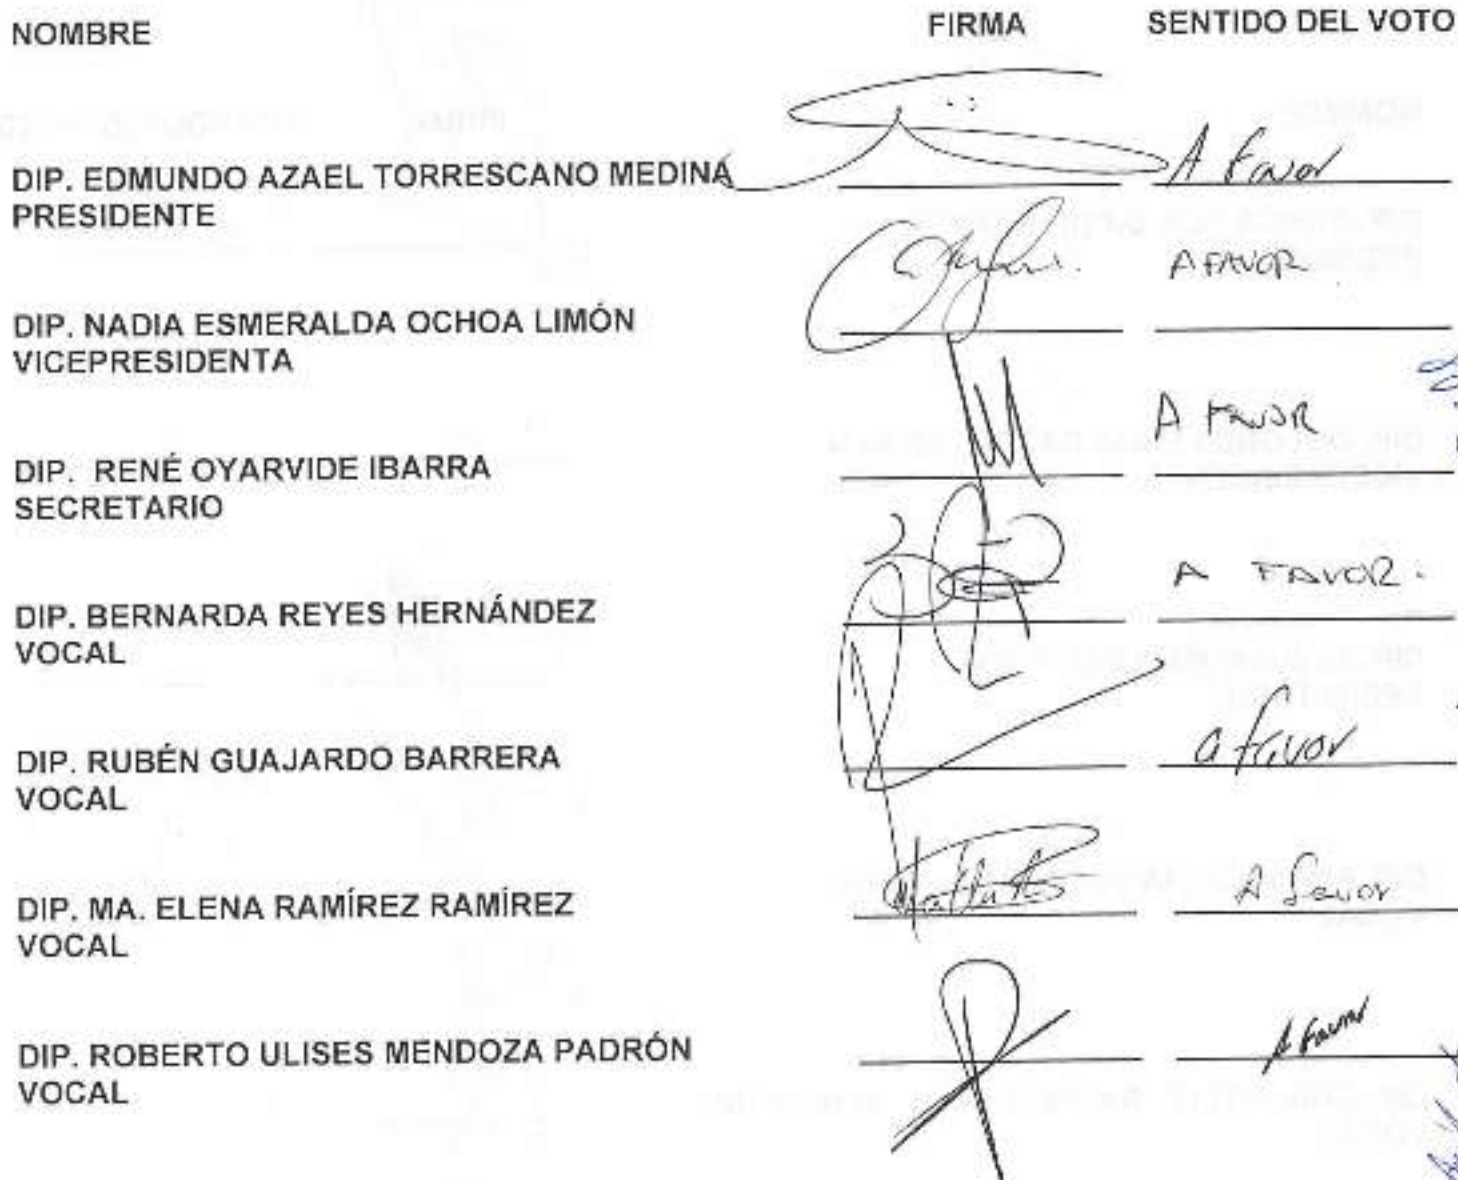 NOMBRE FIRMA SENTIDO DEL VOTO
DIP. EDMUNDO AZAEL TORRESCANO MEDINA A Favor
PRESIDENTE
A FAVOR
DIP. NADIA ESMERALDA OCHOA LIMÓN
VICEPRESIDENTA
A FAVOR
DIP. RENÉ OYARVIDE IBARRA
SECRETARIO
A FAVOR.
DIP. BERNARDA REYES HERNÁNDEZ
VOCAL
DIP. RUBÉN GUAJARDO BARRERA a favor
VOCAL
DIP. MA. ELENA RAMÍREZ RAMÍREZ A favor
VOCAL
DIP. ROBERTO ULISES MENDOZA PADRÓN A Favor
VOCAL